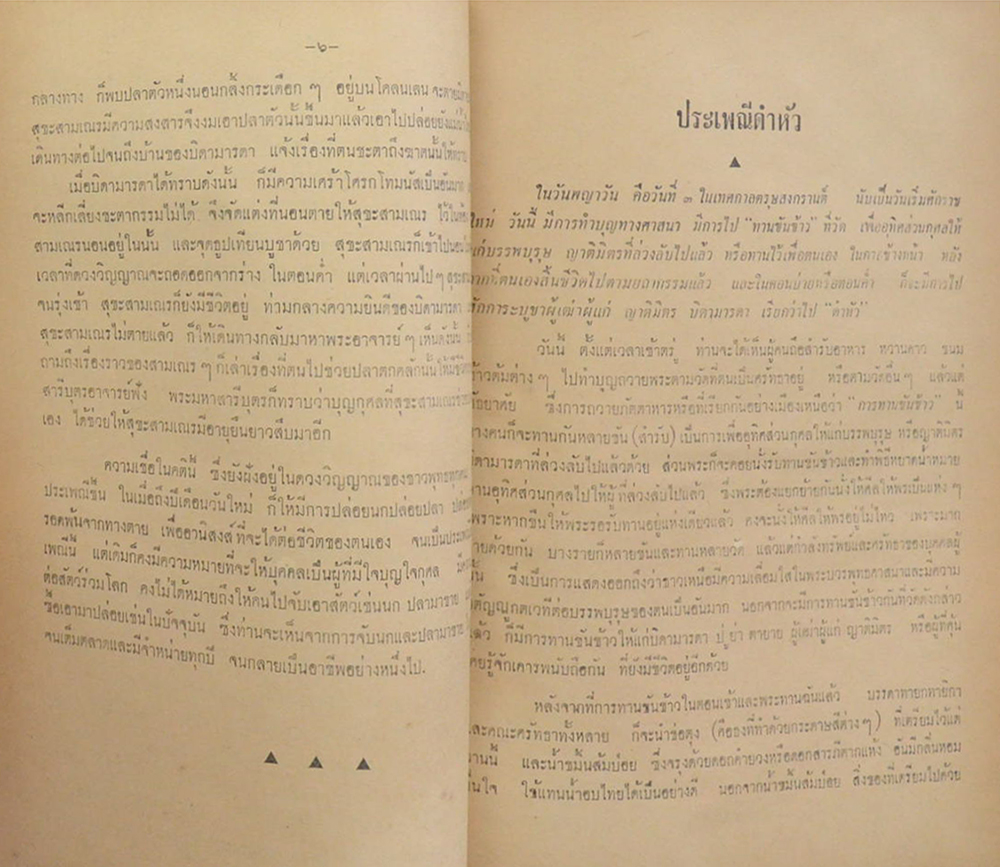 —๖—
กลางทาง ก็พบปลาตัวหนึ่งนอนกลิ้งกระเดือก ๆ อยู่บนโคลนเลน จะตาย
สุชะสามเณรมีความสงสารจึงงมเอาปลาตัวนั้นขึ้นมาแล้วเอาไปปล่อยยังแม่น้ำ
เดินทางต่อไปจนถึงบ้านของบิดามารดา แจ้งเรื่องที่ตนชะตาถึงฆาตนั้นให้ทราบ
เมื่อบิดามารดาได้ทราบดังนั้น ก็มีความเศร้าโศรกโทมนัสเป็นอันมาก
จะหลีกเลี่ยงชะตากรรมไม่ได้ จึงจัดแต่งที่นอนตายให้สุชะสามเณร ไว้ใน
สามเณรนอนอยู่ในนั้น และจุดธูปเทียนบูชาด้วย สุชะสามเณรก็เข้าไปนอน
เวลาที่ดวงวิญญาณจะถอดออกจากร่าง ในตอนค่ำ แต่เวลาผ่านไป ๆ
จนรุ่งเช้า สุชะสามเณรก็ยังมีชีวิตอยู่ ท่ามกลางความยินดีของบิดามารดา
สุชะสามเณรไม่ตายแล้ว ก็ให้เดินทางกลับมาหาพระอาจารย์ ๆ เห็นดังนั้น
ถามถึงเรื่องราวของสามเณร ๆ ก็เล่าเรื่องที่ตนไปช่วยปลาตกคลักนั้นให้มีชีวิต
สารีบุตรอาจารย์ฟัง พระมหาสารีบุตรก็ทราบว่าบุญกุศลที่สุชะสามเณร
เอง ได้ช่วยให้สุชะสามเณรมีอายุยืนยาวสืบมาอีก
ความเชื่อในคตินี้ ซึ่งยังฝังอยู่ในดวงวิญญาณของชาวพุทธ
ประเพณีขึ้น ในเมื่อถึงปีเดือนวันใหม่ ก็ให้มีการปล่อยนกปล่อยปลา
รอดพ้นจากทางตาย เพื่ออานิสงส์ที่จะได้ต่อชีวิตของตนเอง จนเป็น
เพณีนี้ แต่เดิมก็คงมีความหมายที่จะให้บุคคลเป็นผู้ที่มีใจบุญใจกุศล
ต่อสัตว์ร่วมโลก คงไม่ได้หมายถึงให้คนไปจับเอาสัตว์เช่นนก ปลามาขาย
ซื้อเอามาปล่อยเช่นในปัจจุบัน ซึ่งท่านจะเห็นจากการจับนกและปลามาขาย
จนเต็มตลาดและมีจำหน่ายทุกปี จนกลายเป็นอาชีพอย่างหนึ่งไป.
ประเพณีดำหัว
ในวันพญาวัน คือวันที่ ๓ ในเทศกาลตรุษสงกรานต์ นับเป็นวันเริ่มศักราช
ใหม่ วันนี้ มีการทำบุญทางศาสนา มีการไป "ทานขันข้าว" ที่วัด เพื่ออุทิศส่วนกุศลให้
แก่บรรพบุรุษ ญาติมิตรที่ล่วงลับไปแล้ว หรือทานไว้เพื่อตนเอง ในภาคข้างหน้า หลัง
จากที่ตนเองสิ้นชีวิตไปตามยถากรรมแล้ว และในตอนบ่ายหรือตอนค่ำ ก็จะมีการไป
สักการะบูชาผู้เฒ่าผู้แก่ ญาติมิตร บิดามารดา เรียกว่าไป "ดำหัว"
วันนี้ ตั้งแต่เวลาเช้าตรู่ ท่านจะได้เห็นผู้คนถือสำรับอาหาร หวานคาว ขนม
ข้าวต้มต่าง ๆ ไปทำบุญถวายพระตามวัดที่ตนเป็นศรัทธาอยู่ หรือตามวัดอื่น ๆ แล้วแต่
อัธยาศัย ซึ่งการถวายภัตตาหารหรือที่เรียกกันอย่างเมืองเหนือว่า "การทานขันข้าว" นี้
บางคนก็จะทานกันหลายขัน (สำรับ) เป็นการเพื่ออุทิศส่วนกุศลให้แก่บรรพบุรุษ หรือญาติมิตร
บิดามารดาที่ล่วงลับไปแล้วด้วย ส่วนพระก็จะคอยนั่งรับทานขันข้าวและทำพิธีหยาดน้ำหมาย
ทานอุทิศส่วนกุศลไปให้ผู้ที่ล่วงลับไปแล้ว ซึ่งพระต้องแยกย้ายกันนั่งให้ศีลให้พรเป็นแห่ง ๆ
เพราะหากขืนให้พระรอรับทานอยู่แห่งเดียวแล้ว คงจะนั่งให้ศีลให้พรอยู่ไม่ไหว เพราะมาก
รายด้วยกัน บางรายก็หลายขันและทานหลายวัด แล้วแต่กำลังทรัพย์และศรัทธาของบุคคลผู้
นั้น ซึ่งเป็นการแสดงออกถึงว่าชาวเหนือมีความเลื่อมใสในพระบวรพุทธศาสนาและมีความ
กตัญญูกตเวทีต่อบรรพบุรุษของตนเป็นอันมาก นอกจากจะมีการทานขันข้าวกันที่วัดดังกล่าว
แล้ว ก็มีการทานขันข้าวให้แก่บิดามารดา ปู่ ย่า ตายาย ผู้เฒ่าผู้แก่ ญาติมิตร หรือผู้ที่คุ้น
เคยรู้จักเคารพนับถือกัน ที่ยังมีชีวิตอยู่อีกด้วย
หลังจากที่การทานขันข้าวในตอนเช้าและพระทานฉันแล้ว บรรดาทายกทายิกา
และคณะศรัทธาทั้งหลาย ก็จะนำช่อตุง (คือธงที่ทำด้วยกระดาษสีต่าง ๆ) ที่เตรียมไว้แต่
วานนี้ และน้ำขมิ้นส้มป่อย ซึ่งจรุงด้วยดอกคำยวงหรือดอกสารภีตากแห้ง อันมีกลิ่นหอม
ชื่นใจ ใช้แทนน้ำอบไทยได้เป็นอย่างดี นอกจากน้ำขมิ้นส้มป่อย สิ่งของที่เตรียมไปด้วย